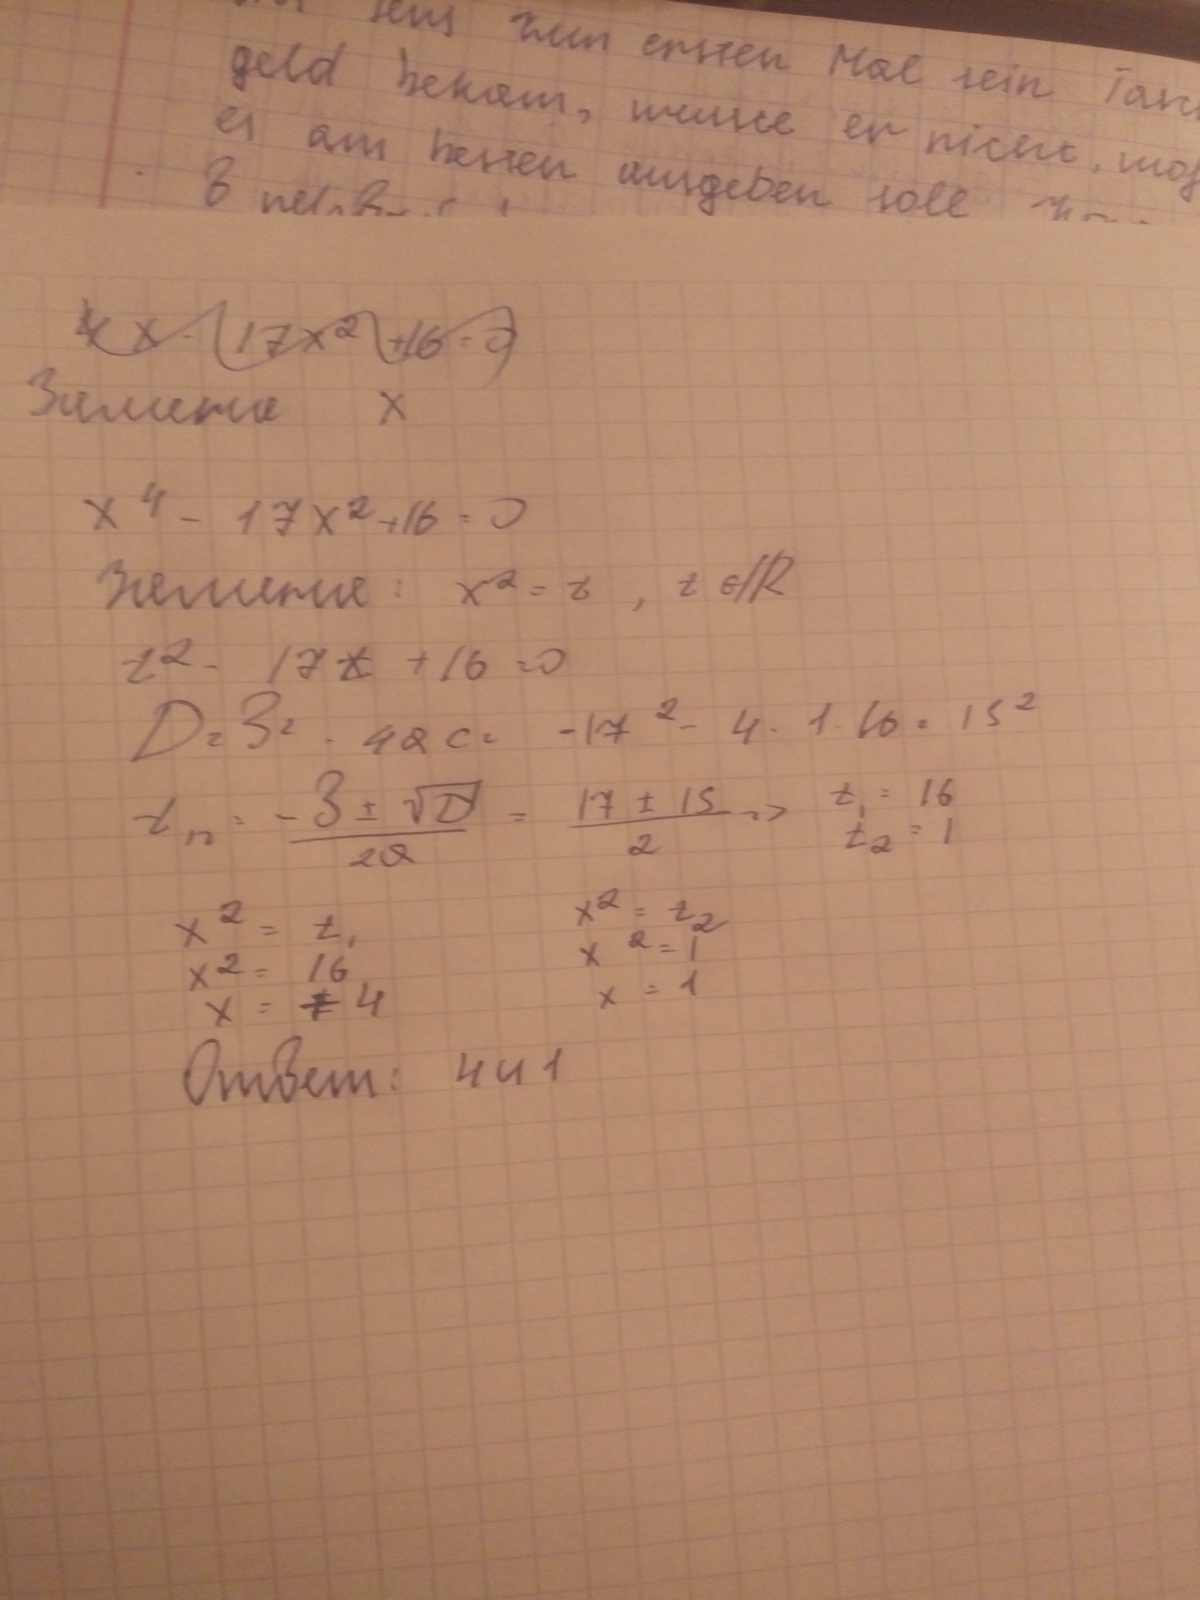 zum ersten Mal sein
geld bekam, wusste er nicht, was
er am besten ausgeben soll
4x - 17x² + 16 = 0
Замена x
x⁴ - 17x² + 16 = 0
Замена: x² = t, t ∈ ℝ
t² - 17t + 16 = 0
D = B² - 4ac = -17² - 4 · 1 · 16 = 15²
tₙ = (-B ± √D)/2a = (17 ± 15)/2 => t₁ = 16
t₂ = 1
x² = t₁ x² = t₂
x² = 16 x² = 1
x = 4 x = 1
Ответ: 4 и 1